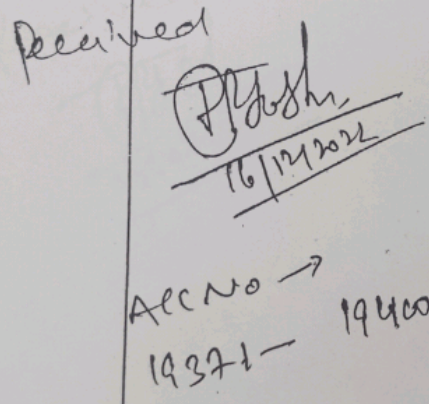 Received
PJoshi
16/12/2022
Acc No →
19371 - 19400